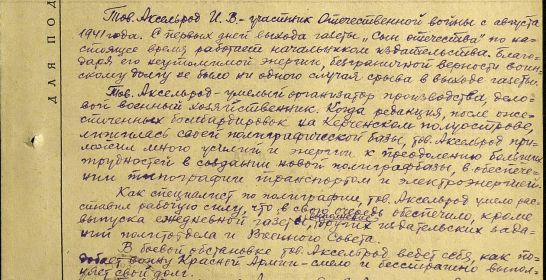 ДЛЯ ПОД
Тов. Аксельрод И.В. - участник Отечественной войны с августа
1941 года. С первых дней выхода газеты "Сын отечества" по на-
стоящее время работает начальником издательства. Благо-
даря его неутомимой энергии, безграничной верности воин-
скому долгу не было ни одного случая срыва в выходе газеты.
Тов. Аксельрод - умелый организатор производства, дело-
вой военный хозяйственник. Когда редакция, после оже-
сточенных бомбардировок на Керченском полуострове,
лишилась своей полиграфической базы, тов. Аксельрод при-
ложил много усилий и энергии к преодолению больших
трудностей в создании новой полиграфбазы, в обеспече-
нии типографии транспортом и электроэнергией.
Как специалист по полиграфии, тов. Аксельрод умело рас-
ставил рабочую силу, что в свою очередь обеспечило, кроме
выпуска ежедневной газеты, других издательских зада-
ний политотдела и Военного Совета.
В боевой обстановке тов. Аксельрод ведет себя, как по-
добает воину Красной Армии - смело и бесстрашно выпол-
няет свой долг.